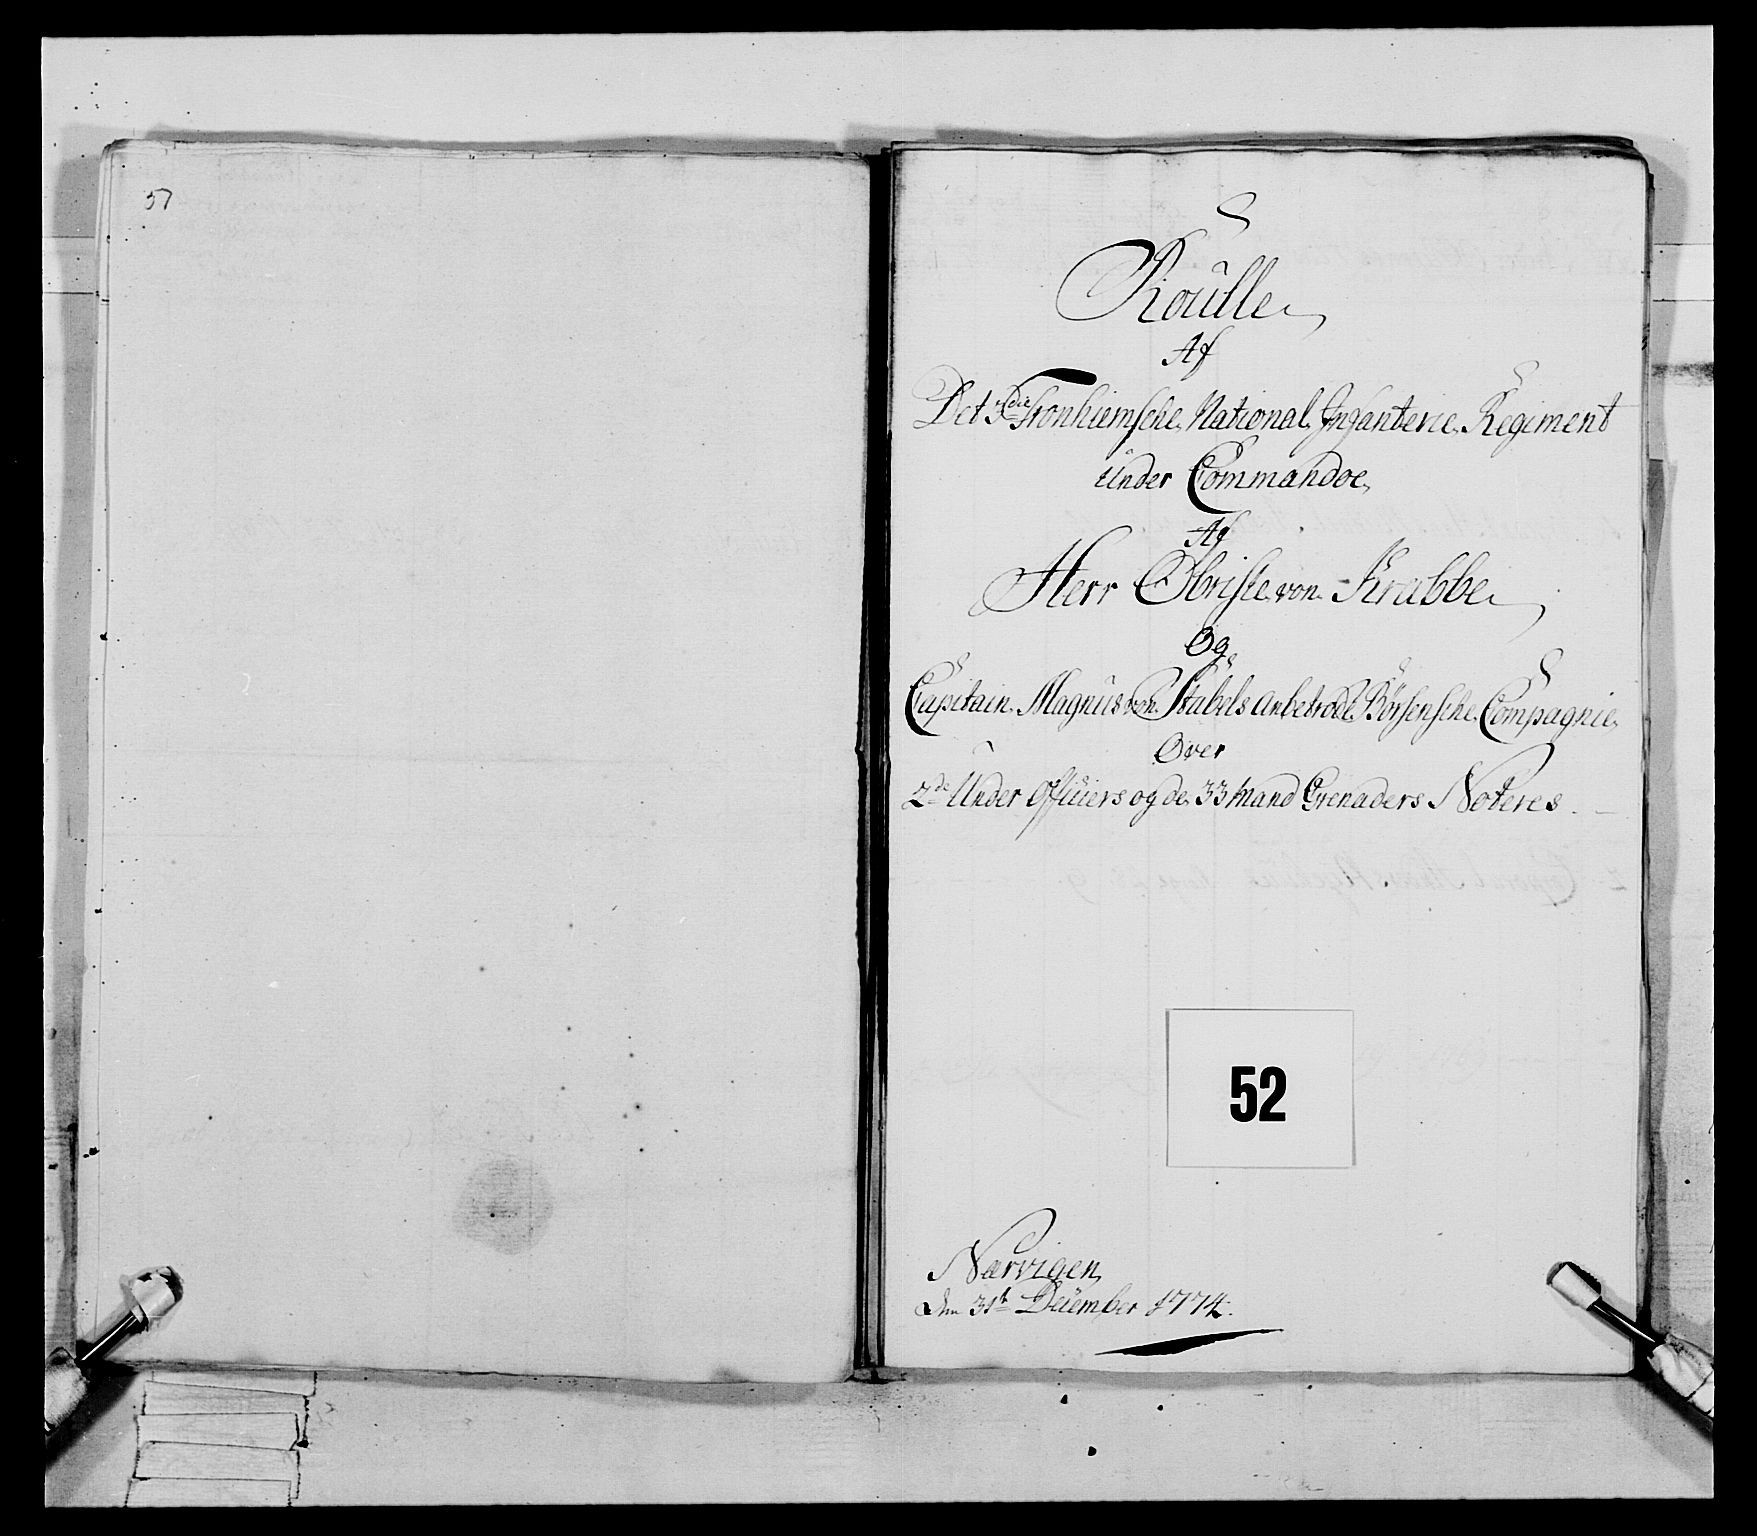 57
Roulle
Af
Det 3die Tronhiemsche National Infanterie Regiment
Under Commandoe
Af
Herr Obriste von Krabbe
Og
Capitain Magnus von Stabels anbetroede Börsensche Compagnie
Over
2de Under Officiers og de 33 Mand Grenaders Noteres
52
Nærvigen
den 31t December 1774